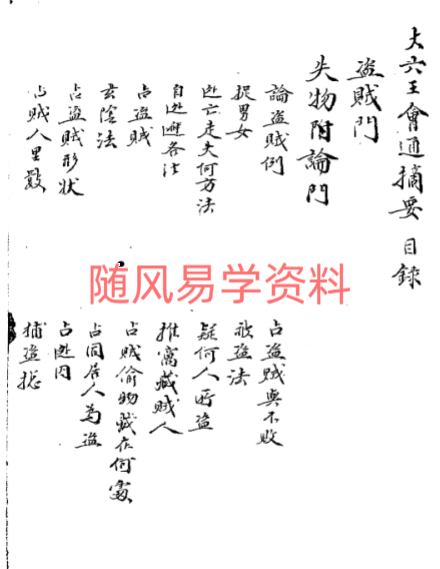 大六壬會通摘要 目錄
盗賊門
失物附論門
論盗賊例
占盗賊與不敗
捉男女
敗盗法
逃亡走失何方法
疑何人所盗
自逃避各法
推窩藏賊人
占盗賊
占賊偷物藏在何處
玄陰法
占同居人為盗
占盗賊形状
占逃因
占賊人里数
捕盗總
随风易学资料